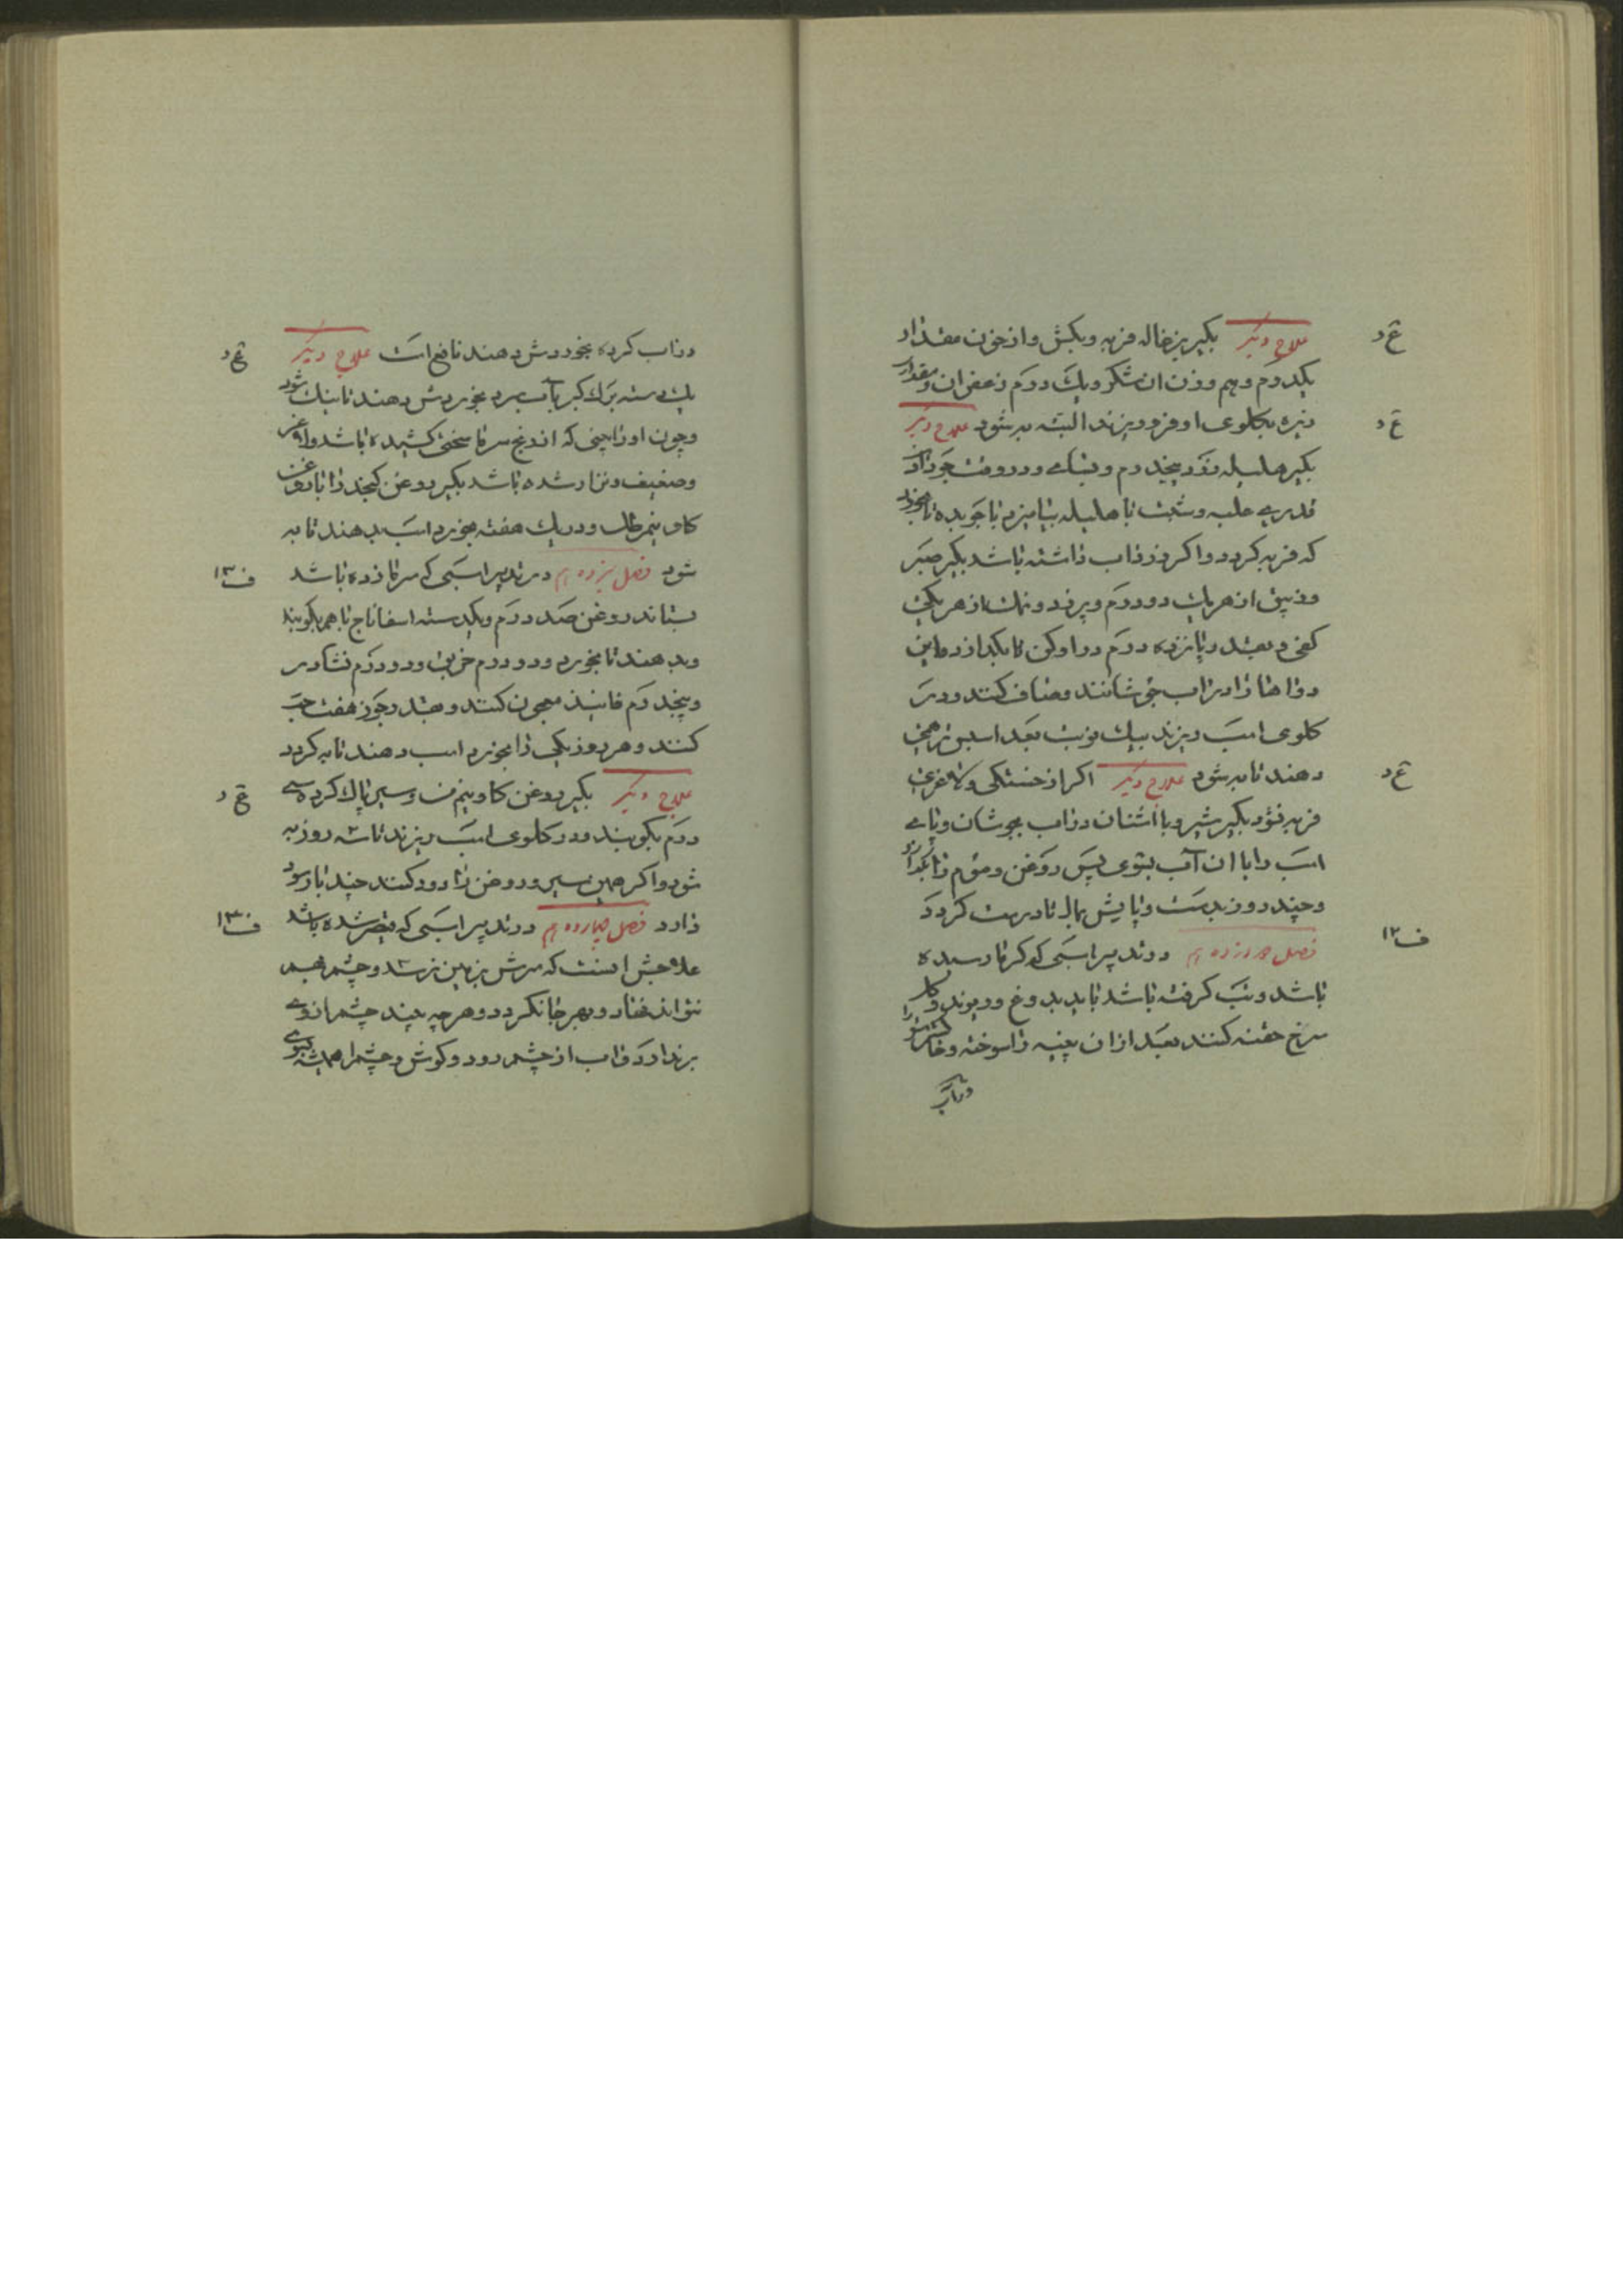 علاج دیگر بگیر بزغاله فربه و بکش و از خون مقدار
یکدرم و هم وزن ان شکر و یک درم زعفران و مقدار
زیره بکلوی او فرو ریزند البته به شود علاج دیگر
بگیر هلیله زرد پنجدرم و در وقت جو دادن
قدری حلبه و شبت با هلیله بیامیزد با جو بده تا بخورد
که فربه کردد و اکر زرداب داشته باشد بگیر صبر
از هر یک دو درم و نمک از هر یکی
کفی و بقدر پانزده درم در او کن تا بکدازد و این
دواها را در اب جوشانند و صاف کنند و در
کلوی اسب ریزند بیک نوبت بعد
دهند تا به شود علاج دیگر اکر از خستکی و لاغری
فربه نشود بگیر شیر و با اشنان در اب بجوشان و پای
اسب را با ان آب بشوی پس روغن و موم را بکداز
و چند روز بدست و پایش بمال تا درست کردد
فصل دوازدهم در تدبیر اسبی که کرما رسیده
باشد و تب کرفته باشد باید بدوغ و ریوند و کل
سرخ حقنه کنند بعد از ان پنبه را سوخته و خاکسترش را
در اب
ع د
ع د
ع د
ف ۱۲
در اب کرده بخوردش دهند نافع است علاج دیگر
یک دسته برک کبر بآب سرد بخوردش دهند تا نیک شود
و چون اورا بینی که از رنج سرما سختی کشیده باشد و لاغر
و ضعیف و نزار شده باشد بگیر روغن کنجد را با روغن
کاو نیم رطل و در یک هفته بخورد اسب بدهند تا به
شود فصل سیزدهم در تدبیر اسبی که سرما زده باشد
بستاند روغن صد درم و یکدسته اسفاناج با هم بکوبند
و بدهند تا بخورد و دو درم خربق و دو درم نشادر
و پنجدرم فانیذ معجون کنند و بقدر جوز هفت حب
کنند و هر روز یکی را بخورد اسب دهند تا به کردد
علاج دیگر بگیر روغن کاو نیم من و سیر پاک کرده سی
درم بکوبند و در کلوی اسب ریزند تا سه روز به
شود و اکر همین سیر و روغن را دود کنند چند بار سود
دارد فصل چهاردهم در تدبیر اسبی که شده باشد
علاجش انست که سرش بزمین نرسد و چشم بهم
نتواند نهاد و بهر جا نکردد و هر چه بیند چشم از وی
برندارد و اب از چشم رود و کوش و چشم را همیشه بسوی
ع د
ف ۱۳
ع د
ف ۱۳